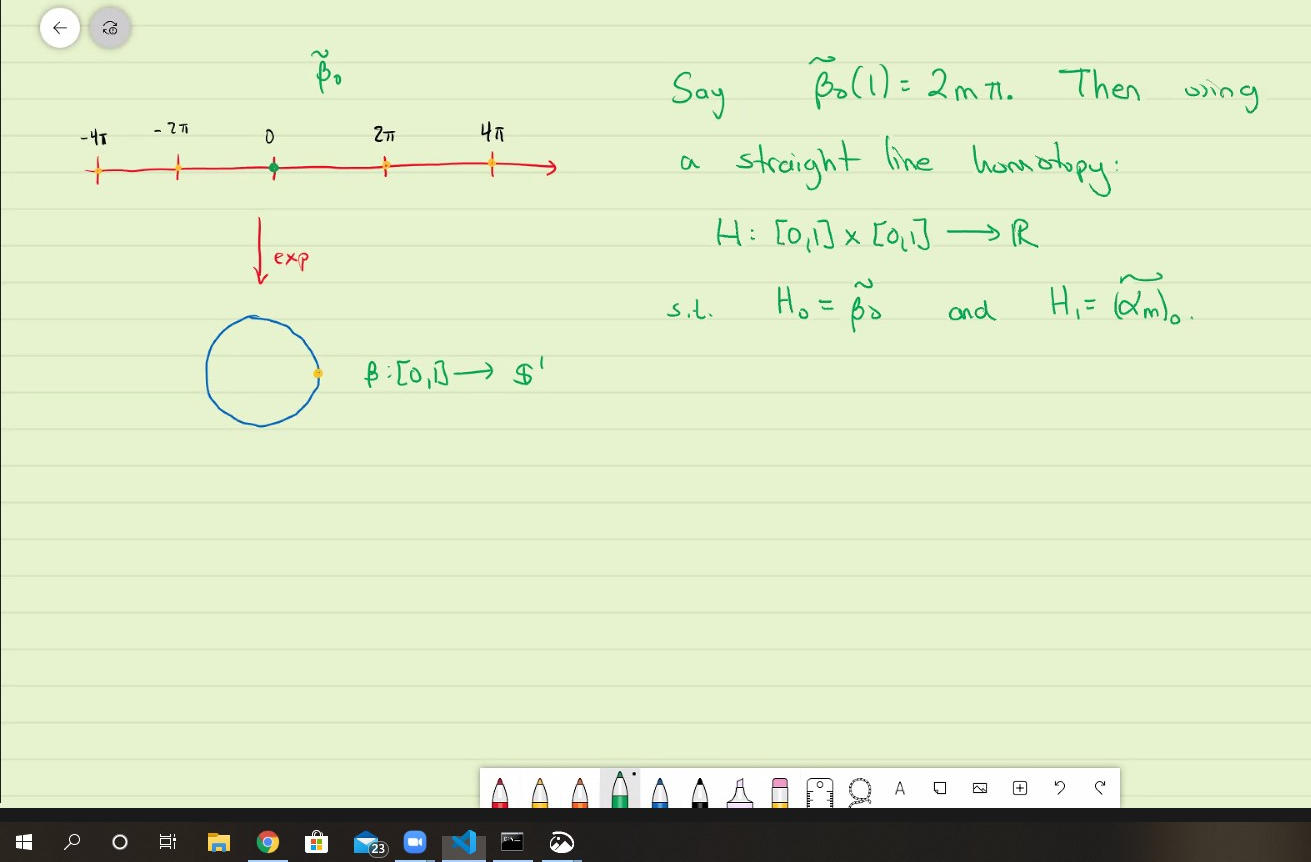 β̃₀
-4π -2π 0 2π 4π
exp
β : [0,1] → 𝕊¹
Say β̃₀(1) = 2mπ. Then using
a straight line homotopy:
H : [0,1] × [0,1] → ℝ
s.t. H₀ = β̃₀ and H₁ = (α̃ₘ)₀.
A
23